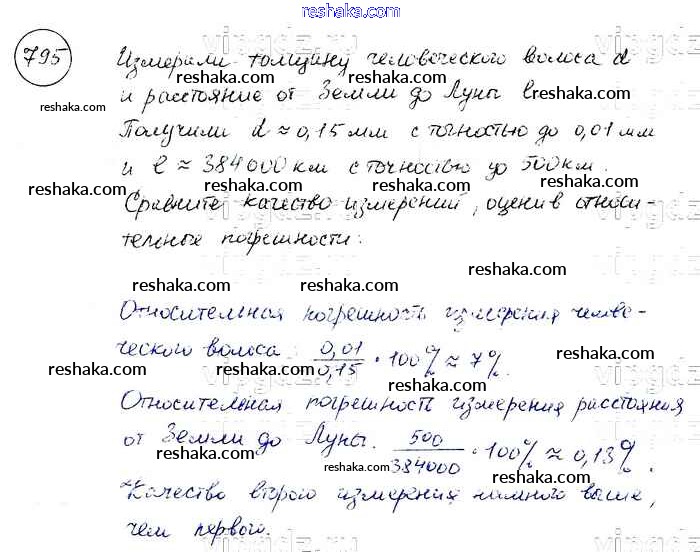 reshaka.com
795 Измерили толщину человеческого волоса d
reshaka.com reshaka.com reshaka.com
и расстояние от Земли до Луны l
reshaka.com reshaka.com reshaka.com
Получили d ≈ 0,15 мм с точностью до 0,01 мм
и l ≈ 384000 км с точностью до 500 км.
reshaka.com reshaka.com reshaka.com reshaka.com
Сравните качество измерений, оценив относи-
тельные погрешности:
reshaka.com reshaka.com reshaka.com
Относительная погрешность измерения челове-
reshaka.com reshaka.com
ческого волоса: 0,01/0,15 · 100% ≈ 7%.
reshaka.com reshaka.com
Относительная погрешность измерения расстояния
reshaka.com
от Земли до Луны. 500/384000 · 100% ≈ 0,13%.
reshaka.com reshaka.com reshaka.com
Качество второго измерения намного выше,
reshaka.com reshaka.com
чем первого.
reshaka.com